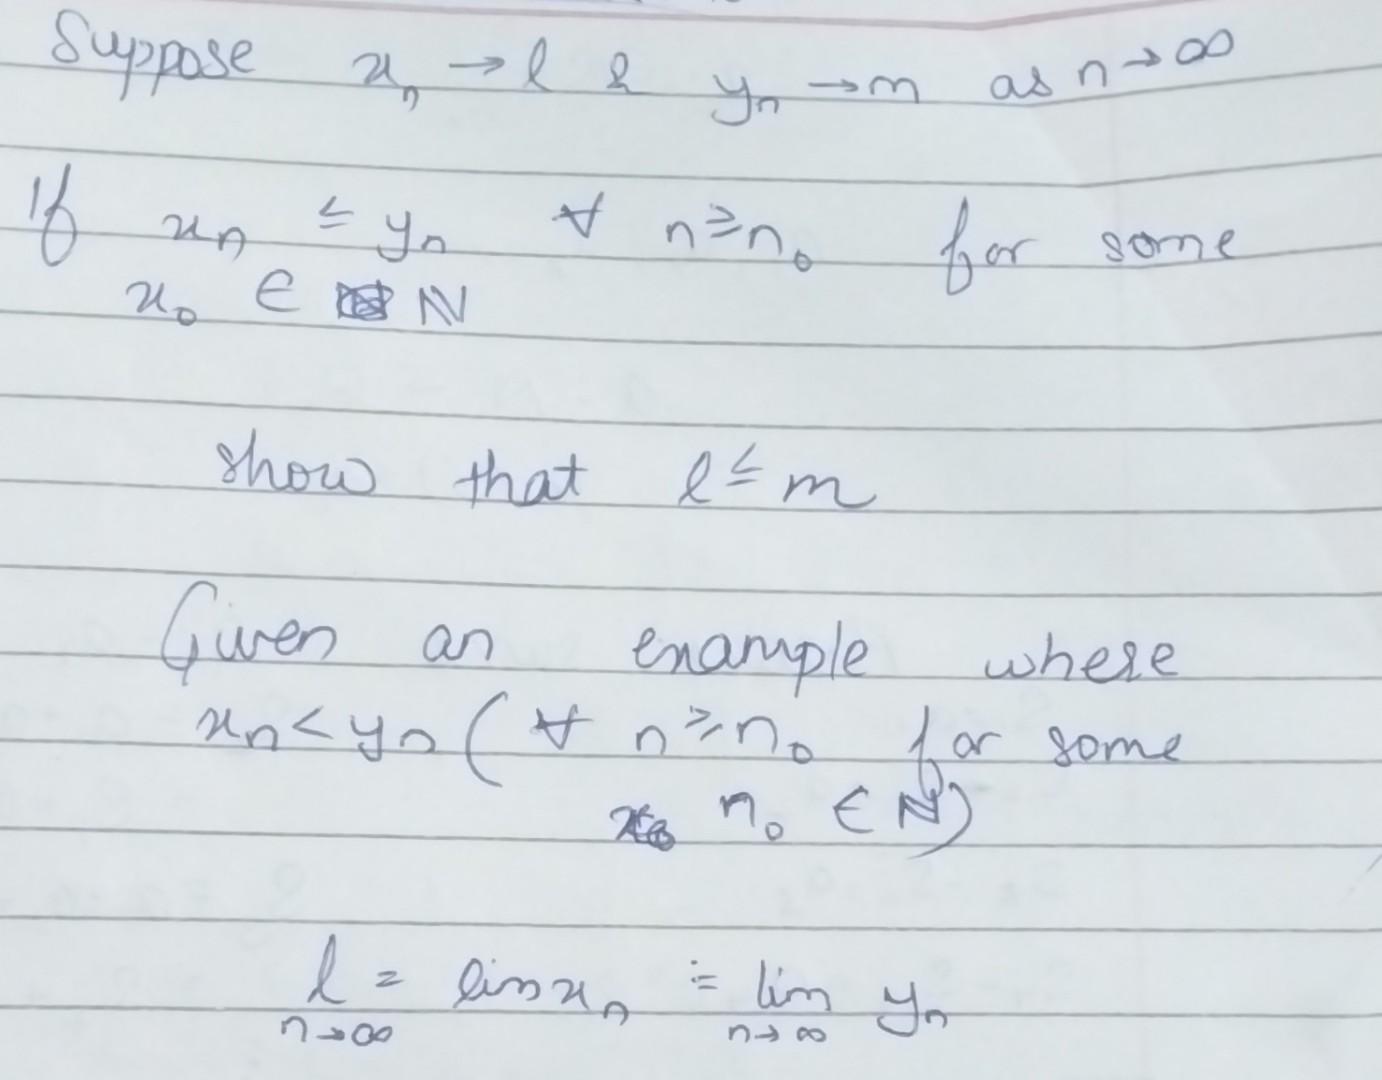 Suppose xₙ → l & yₙ → m as n → ∞
If xₙ ≤ yₙ ∀ n ≥ n₀ for some
x₀ ∈ ℕ
show that l ≤ m
Given an example where
xₙ < yₙ ( ∀ n ≥ n₀ for some
n₀ ∈ ℕ)
l = lim xₙ = lim yₙ
n→∞ n→∞